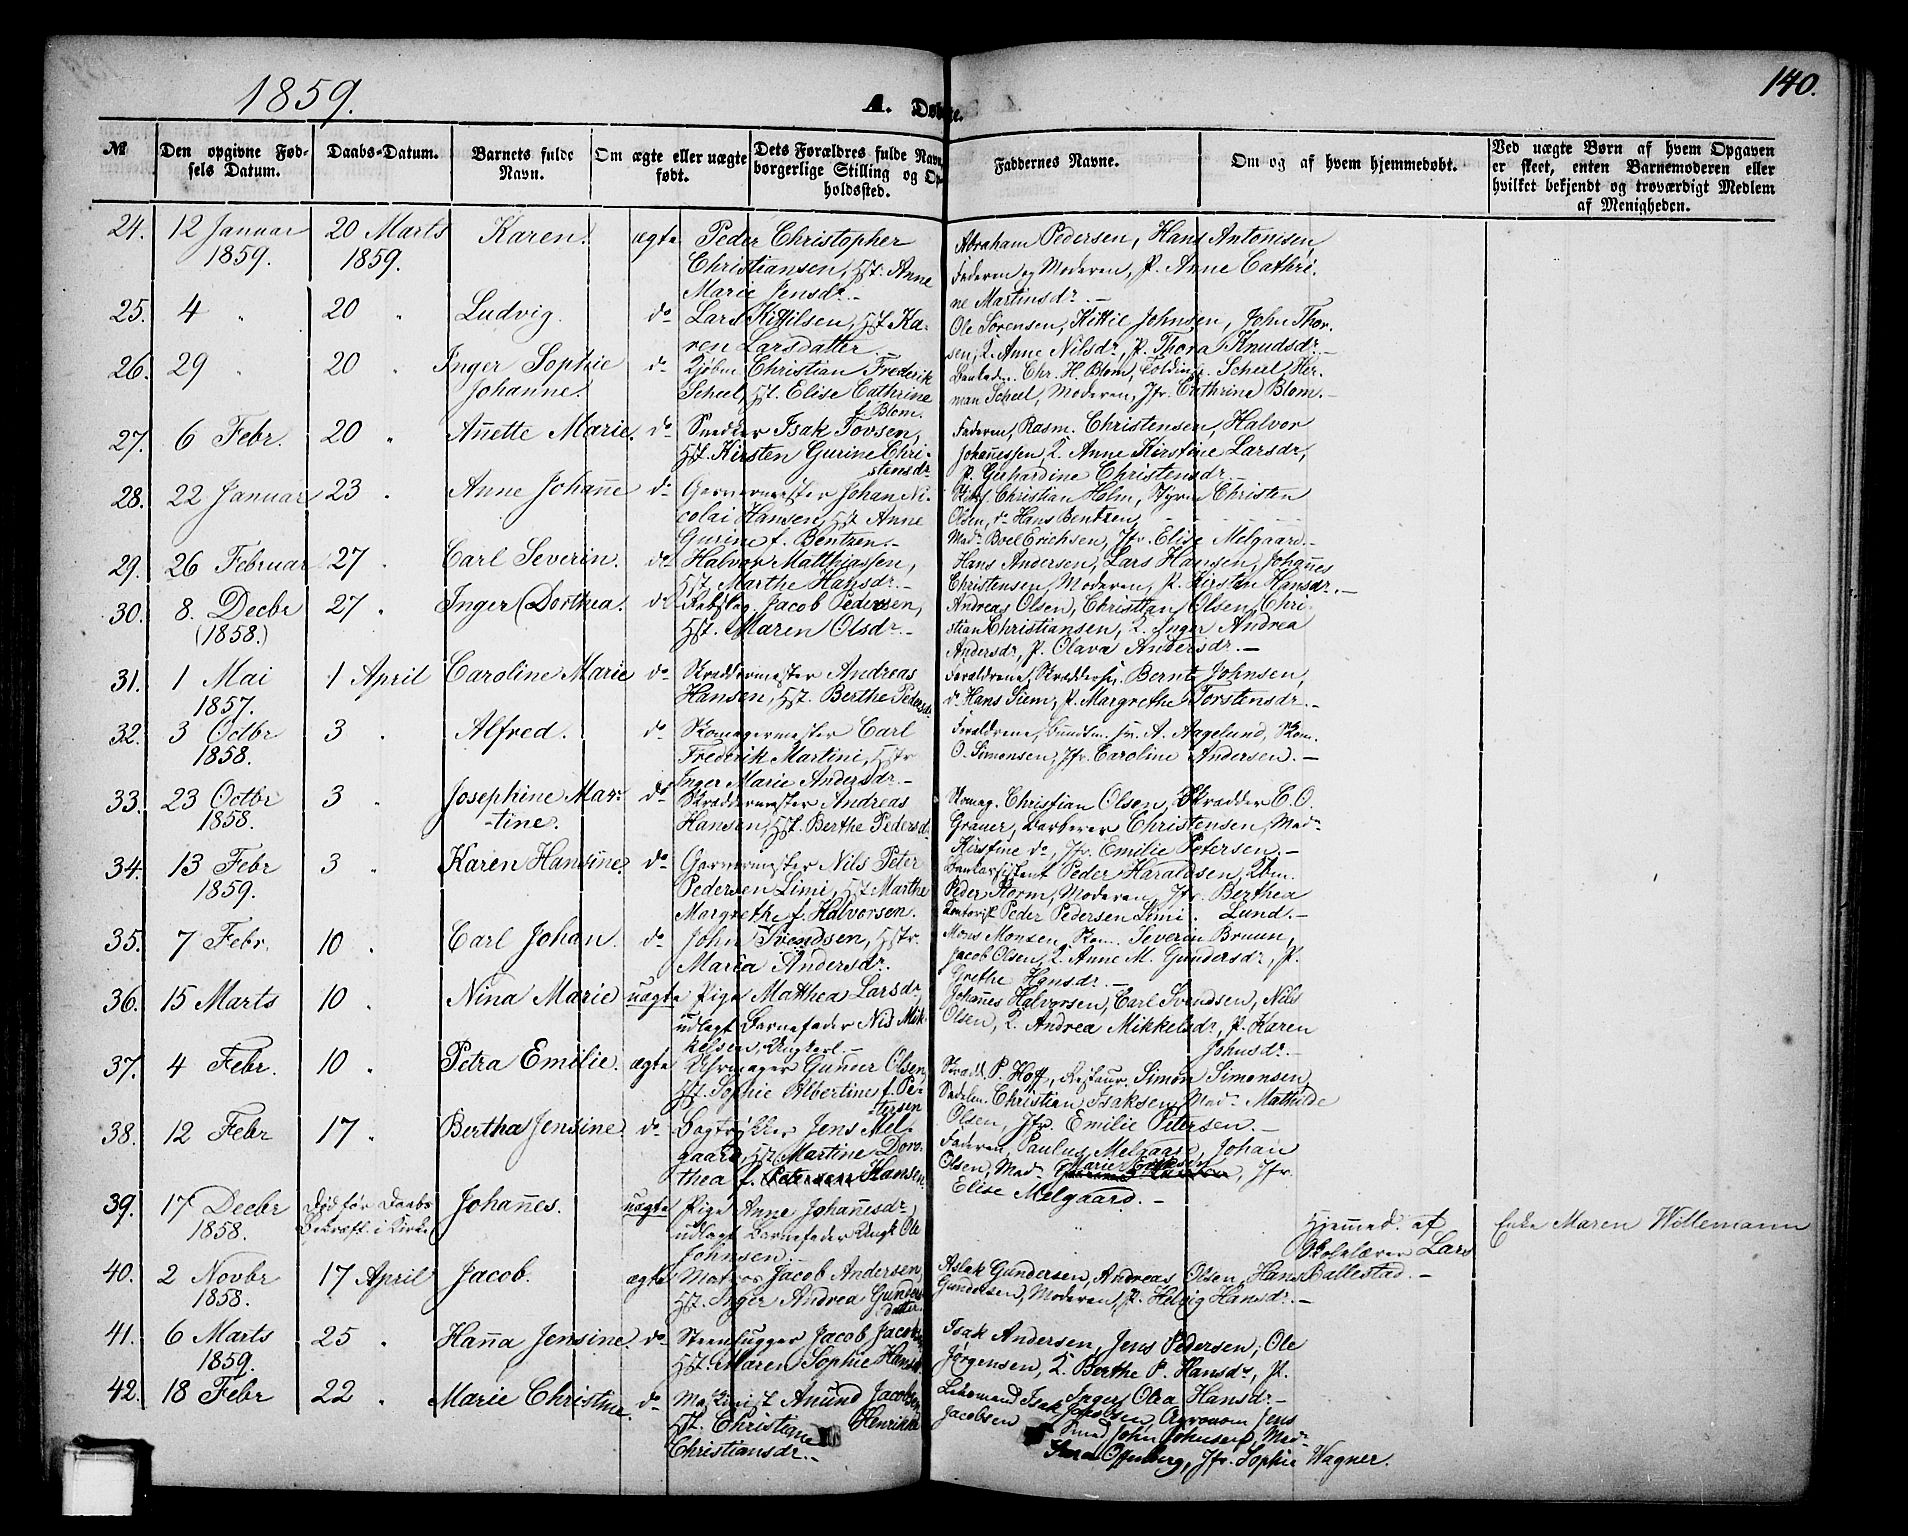 1859.
A. Døbte.
140.
№
Den opgivne Fød-
sels Datum.
Daabs-Datum.
Barnets fulde
Navn.
Om ægte eller uægte
født.
Dets Forældres fulde Navn,
borgerlige Stilling og Op-
holdssted.
Faddernes Navne.
Om og af hvem hjemmedøbt.
Ved uægte Børn af hvem Opgaven
er skeet, enten Barnemoderen eller
hvilket bekjendt og troværdigt Medlem
af Menigheden.
24. 12 Januar 20 Marts Karen. ægte Peder Christopher
1859. 1859. Christiansen, Hst. Anne
Marie Jensdr.-
Abraham Pedersen, Hans Antonisen,
Faderen og Moderen, P. Anne Cathri-
ne Martinsdr.-
25. 4 " 20 " Ludvig. do Lars Kittilsen, Hst. Ka-
ren Larsdatter.
Ole Sørensen, Kittil Johnsen, John Thor-
sen, K. Anne Nilsdr, P. Thora Knudsdr.-
26. 29 " 20 " Inger Sophie do Kjøbm. Christian Frederik
Johanne. Scheel, Hst. Elise Cathrine
f. Blom.
Chr. H. Blom, Scheel, Her-
man Scheel, Moderen, Jfr. Cathrine Blom.-
27. 6 Febr. 20 " Anette Marie. do Snedker Isak Tovsen,
Hst. Kirsten Gurine Chri-
stensdr.
Faderen, Rasm. Christensen, Halvor
Johannessen, K. Anne Kirstine Larsdr,
P. Gerhardine Christensdr.-
28. 22 Januar 23 " Anne Johanne do Garvermester Johan Ni-
colai Hansen, Hst. Anne
Gurine f. Bentzen.-
Christian Holm, Styrm. Christen
Olsen, do Hans Bentzen,
Mad. Boel Erichsen, Jfr. Elise Melgaard.-
29. 26 Februar 27 " Carl Severin. do Halvor Matthiassen,
Hst. Marthe Hansdr.-
Hans Andersen, Lars Hansen, Johannes
Christensen, Moderen, P. Kirsten Hansdr.-
30. 8 Decbr 27 " Inger Dorthea. do Rebslag. Jacob Pedersen,
(1858.) Hst. Maren Olsdr.-
Andreas Olsen, Christian Olsen, Chri-
stian Christiansen, K. Inger Andrea
Andersdr, P. Olava Andersdr.-
31. 1 Mai 1 April Caroline Marie do Skræddermester Andreas
1857. Hansen, Hst. Berthe Pedersdr.
Forældrene, Skræddersv. Bernt Johnsen,
do Hans Siem, P. Margrethe Torstensdr.-
32. 3 Octbr 3 " Alfred. do Skomagermester Carl
1858. Frederik Martini, Hstr.
Inger Marie Andersdr.-
Forældrene, A. Aagelund, Skom.
O. Simonsen, Jfr. Caroline Andersen.-
33. 23 Octbr 3 " Josephine Mar- do Skræddermester Andreas
1858. -tine. Hansen, Hst. Berthe Pedersd.
Skomag. Christian Olsen, Skrædder C. O.
Grauer, Barberer Christensen, Mad.
Kirstine do, Jfr. Emilie Petersen.-
34. 13 Febr 3 " Karen Hansine. do Garvermester Nils Peter
1859. Pedersen Limi, Hst. Marthe
Margrethe f. Halvorsen.
Peder Haraldsen,
Peder Storm, Moderen, Jfr. Berthea
Kontorist Peder Pedersen Limi. Lund.-
35. 7 Febr. 10 " Carl Johan. do John Svendsen, Hstr.
Maria Andersdr.
Mons Monsen, Skom. Severin Bruun,
Jacob Olsen, K. Anne M. Gundersdr, P.
Grethe Hansdr.-
36. 15 Marts 10 " Nina Marie uægte Pige Matthea Larsdr,
udlagt Barnefader Nils Mik-
kelsen, Ungkarl.-
Johannes Halvorsen, Carl Svendsen, Nils
Olsen, K. Andrea Mikkelsdr, P. Karen
Johnsdr.-
37. 4 Febr. 10 " Petra Emilie. ægte Uhrmager Gunder Olsen,
Hst. Sophie Albertine f. Pe-
tersen
Skrædd. P. Hoff, Restaur. Simon Simonsen,
Sadelm. Christian Isaksen, Mad. Mathilde
Olsen, Jfr. Emilie Petersen.-
38. 12 Febr 17 " Bertha Jensine. do Bogtrykker Jens Mel-
gaard, Hst. Martine Doro-
thea f. Petersen Hansen.
Faderen, Paulus Melgaard, Johan
Olsen, Mad. Jfr.
Elise Melgaard.-
39. 17 Decbr Død før Daabs Johannes. uægte Pige Anne Johannesdr,
1858. Bekræft. i Kirke udlagt Barnefader Ungk. Ole
Johnsen.-
Hjemmed. af
Skolelærer Lars
Ballestad.-
Enke Maren Willemann
40. 2 Novbr 17 April Jacob. ægte Matros Jacob Andersen,
1858. Hst. Inger Andrea Gunders
datter.
Aslak Gundersen, Andreas Olsen, Hans
Gundersen, Moderen, P. Helvig Hansdr.-
41. 6 Marts 25 " Hanna Jensine. do Steenhugger Jacob Jacob-
1859. Hst. Maren Sophie Hansd
Isak Andersen, Jens Pedersen, Ole
Jørgensen, K. Berthe P. Hansdr, P.
Inger Olea Hansdr.-
42. 18 Febr 22 " Marie Christine. do Maskinist Anund Jacobsen,
Hst. Christiane Henrikke
Christiansdr.-
Isak Jacobsen, Agronom Jens
Jacobsen Smed John Johnsen, Mad.
Sara Offenberg, Jfr. Sophie Wagner.